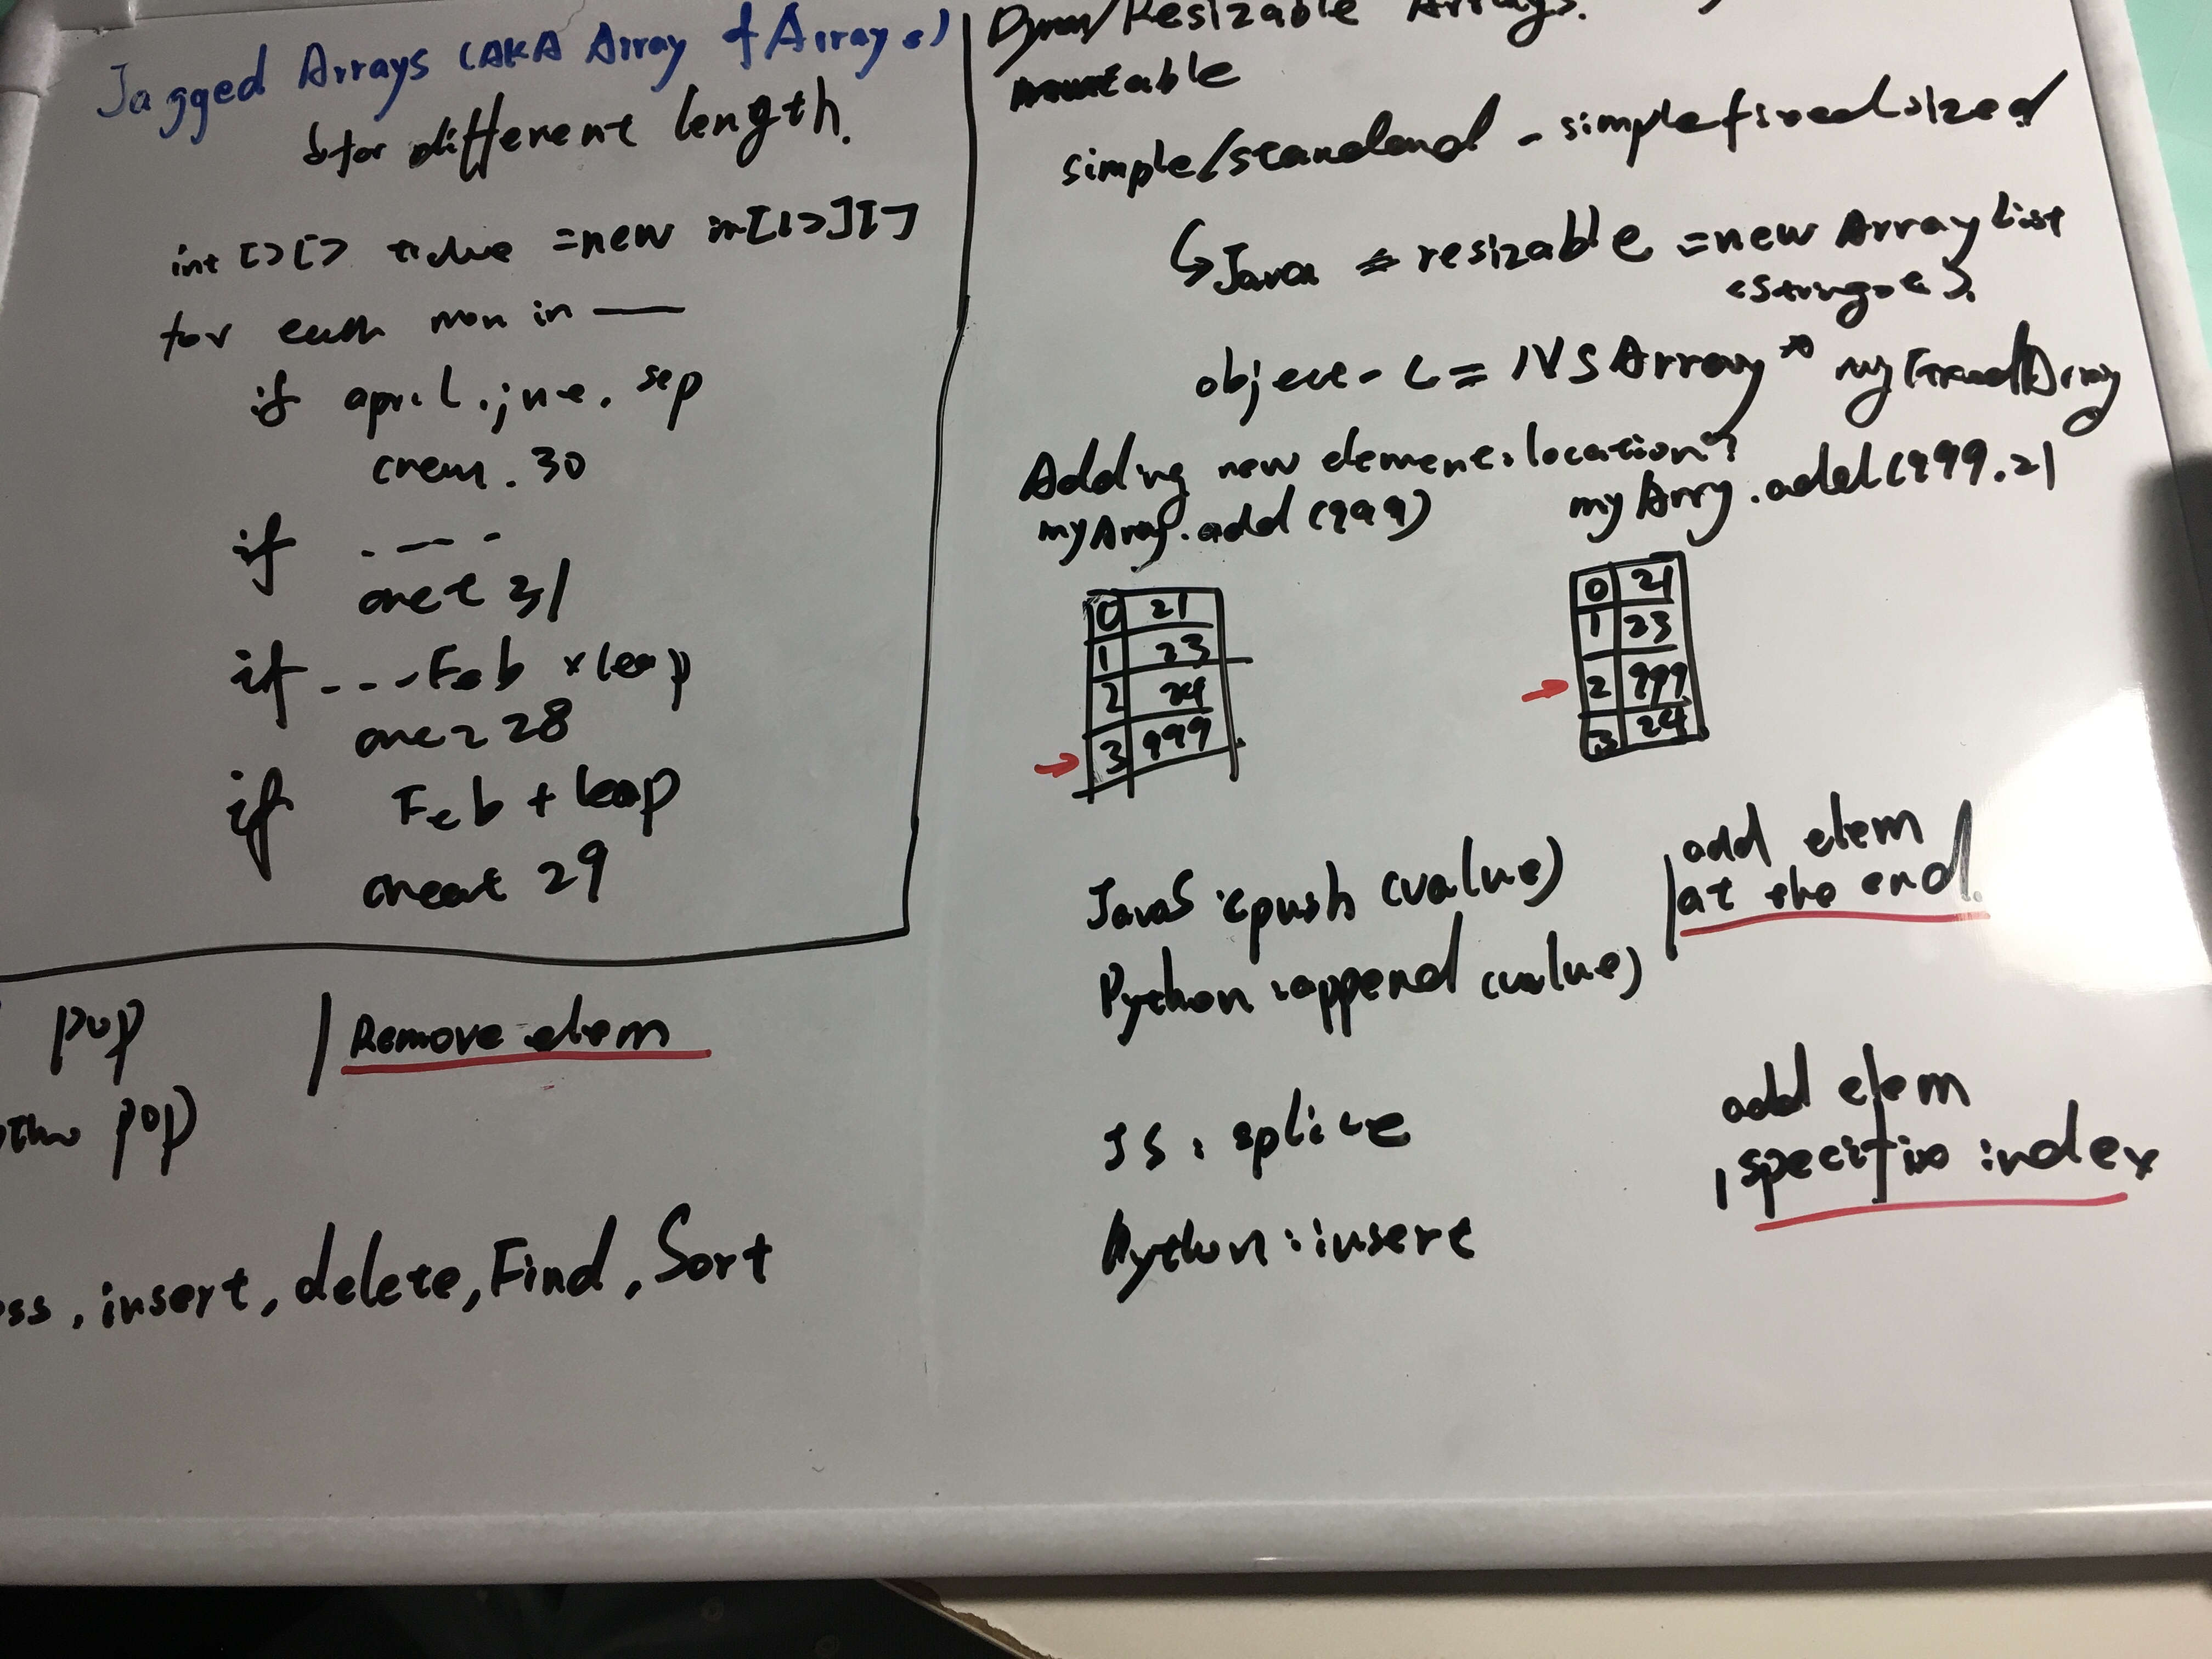 Jagged Arrays (AKA Array of Arrays)
for different length.
int [][] =new in[12][]
for each mon in —
if april, june, sep
30
if . — -
31
if - - - Feb x leap
28
if Feb + leap
creat 29
pop | Remove elem
pop)
, insert, delete, Find, Sort
/Resizable Arrays.
simple/standard - simple fixed sized
↳ Java resizable = new ArrayList
<String> ( ).
object-C = NSArray *
Adding new element. location?
myArray.add(999)
myArry.add(999.2)
0 21
1 23
2 24
3 999
0 21
1 23
2 999
3 24
JavaS : push (value)
Python : append (value)
add elem
at the end.
JS : splice
Python : insert
add elem
specific index